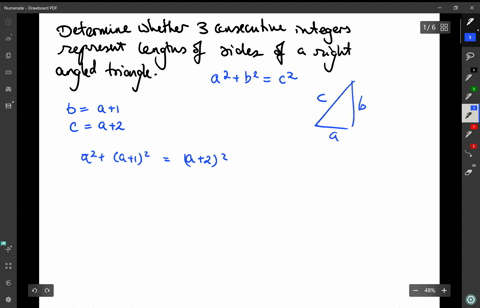 Numerade - Drawboard PDF
Determine whether 3 consecutive integers
represent lengths of sides of a right
angled triangle.
1/6
a² + b² = c²
c
b
a
b = a+1
c = a+2
a² + (a+1)² = (a+2)²
48%